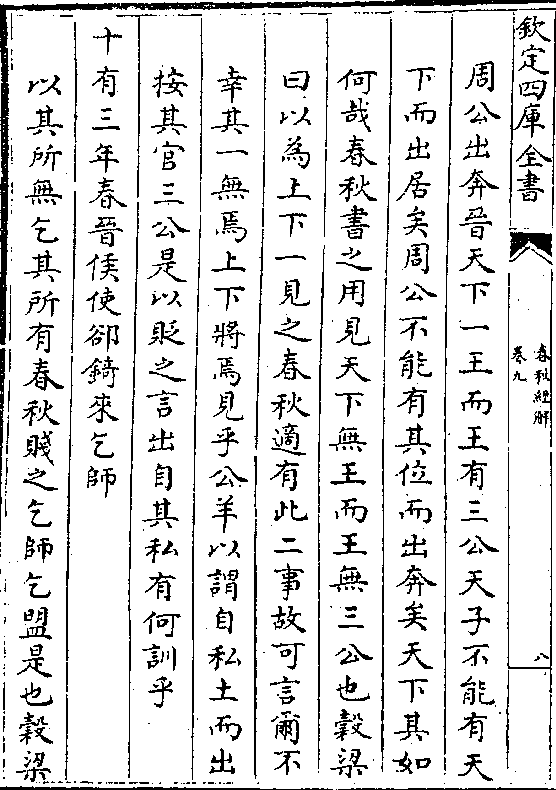 欽定四庫全書
春秋經解
卷九
八
周公出奔晉天下一王而王有三公天子不能有天
下而出居矣周公不能有其位而出奔矣天下其如
何哉春秋書之用見天下無王而王無三公也穀梁
曰以為上下一見之春秋適有此二事故可言爾不
幸其一無焉上下將焉見乎公羊以謂自私土而出
按其官三公是以貶之言出自其私有何訓乎
十有三年春晉侯使郤錡來乞師
以其所無乞其所有春秋賤之乞師乞盟是也穀梁